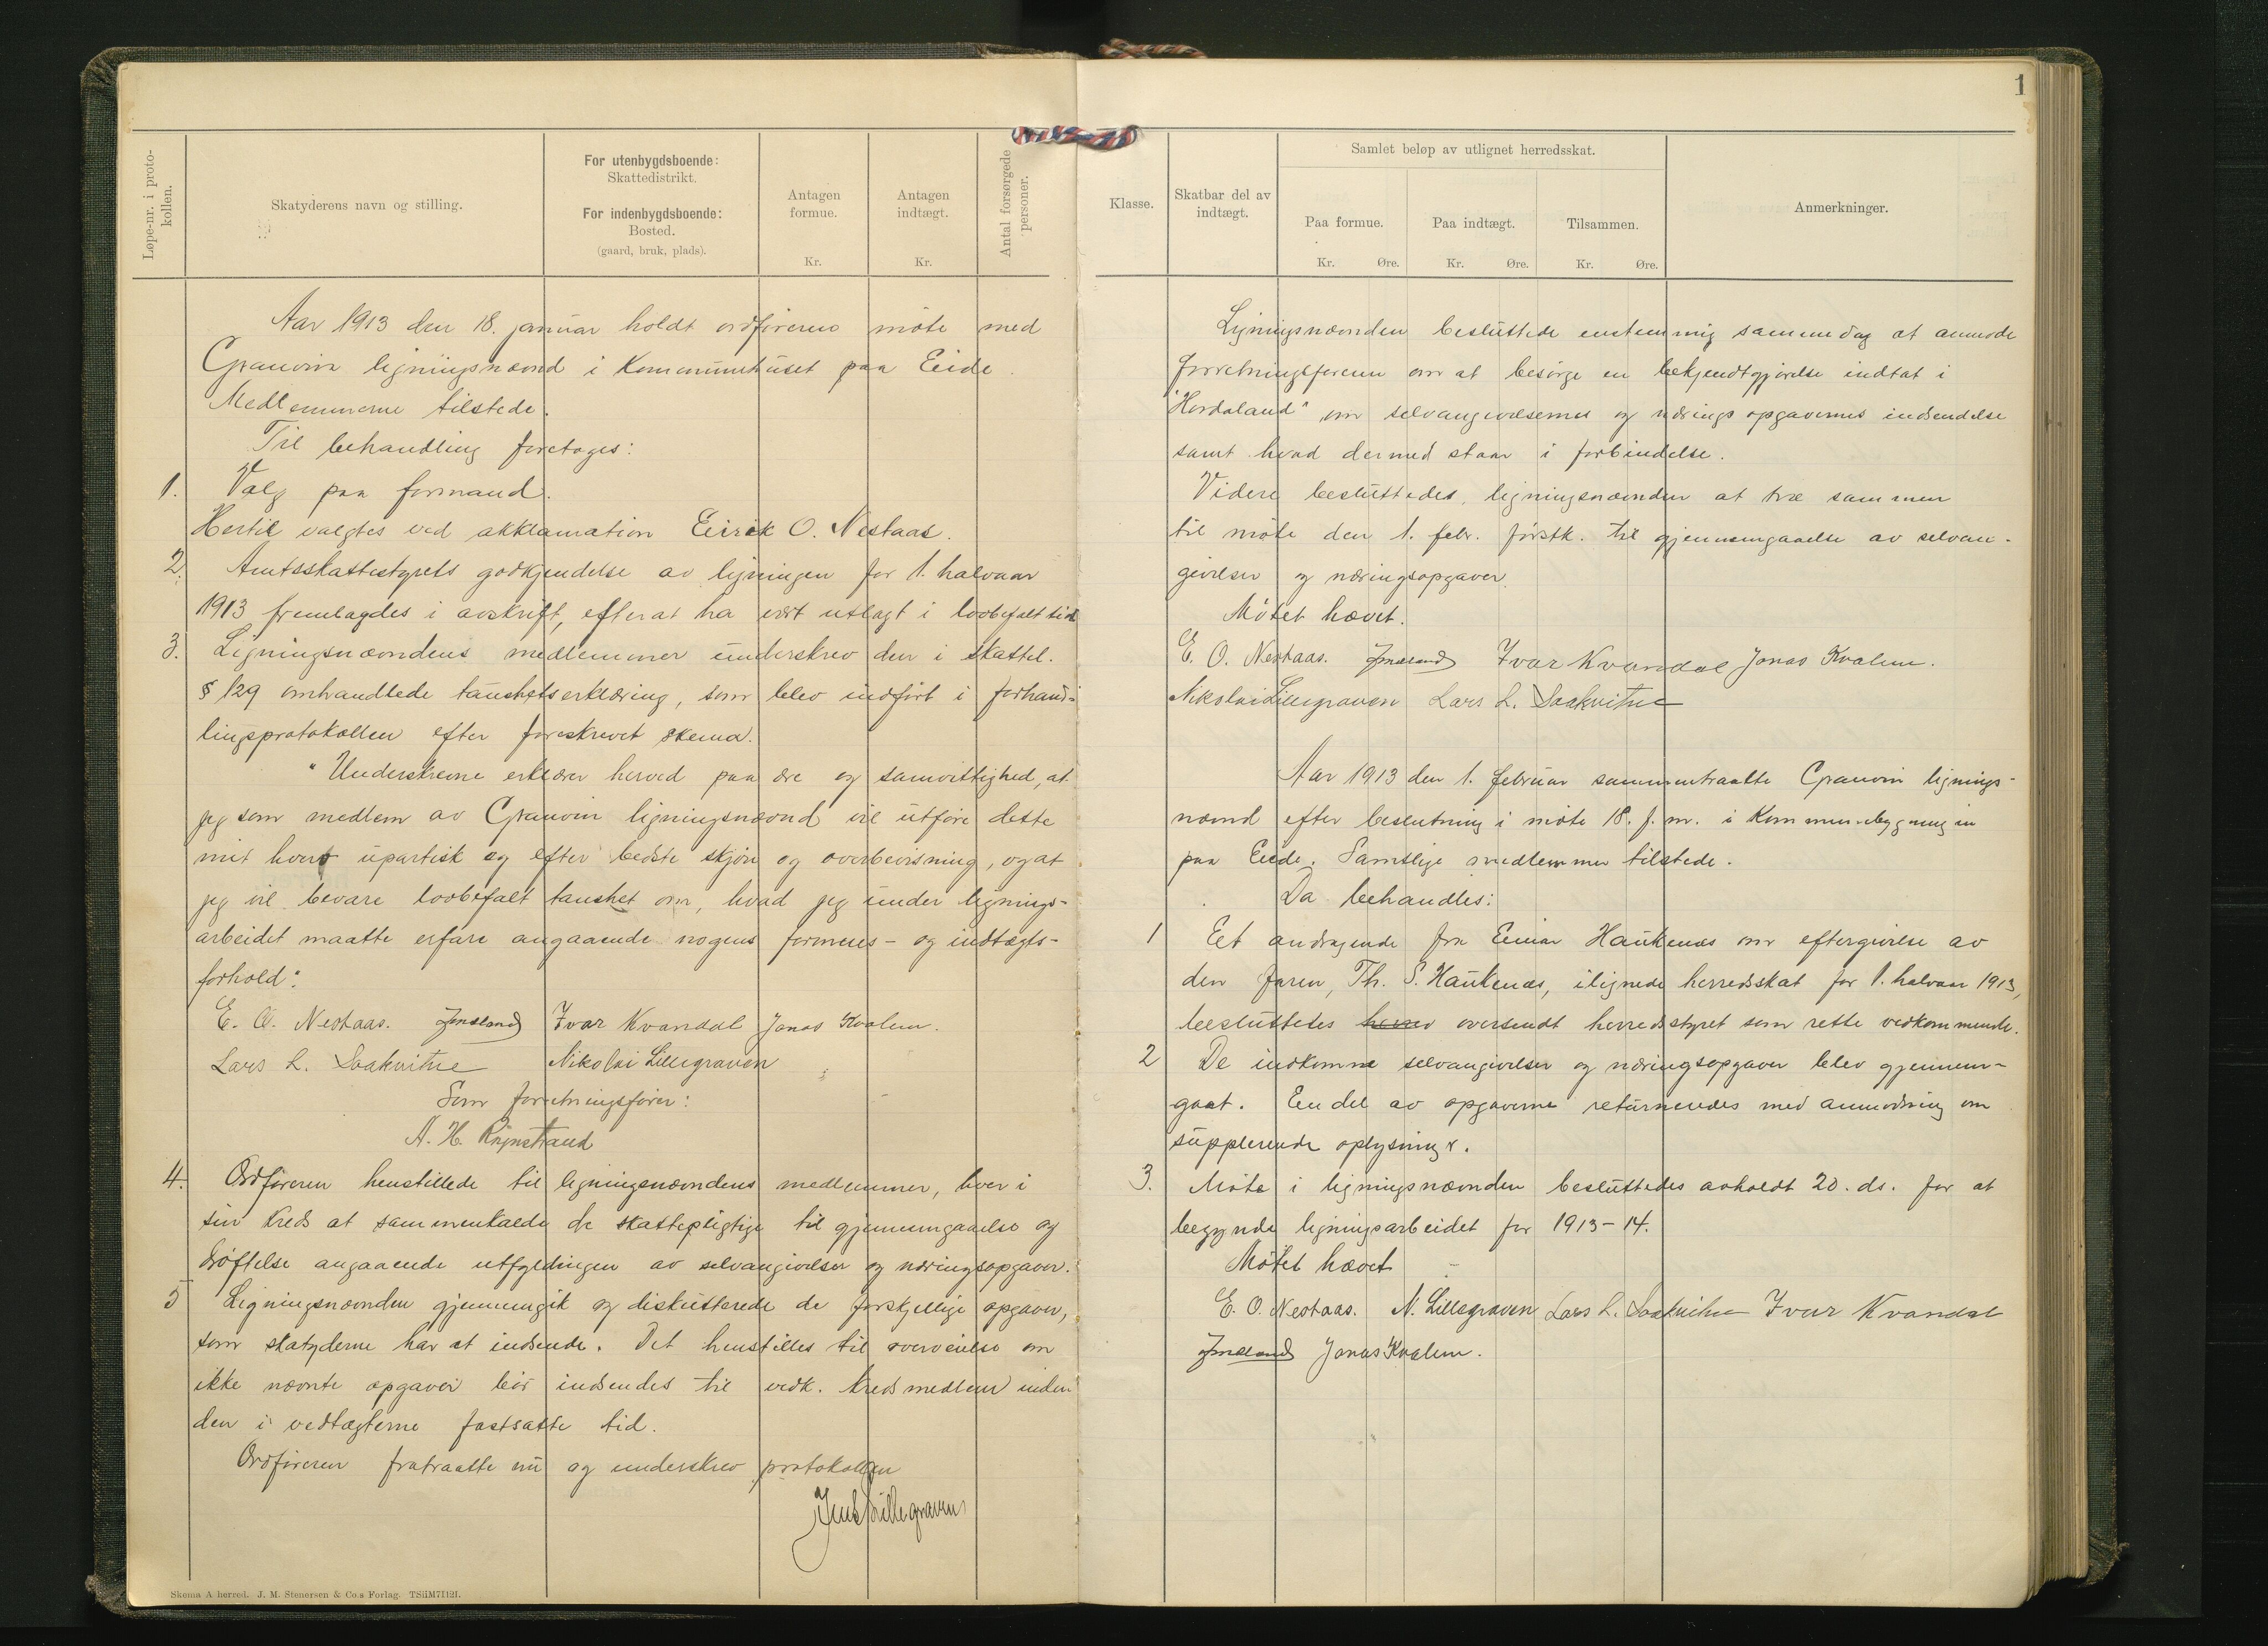 1
Løpe-nr. i proto-
kollen.
Skatyderens navn og stilling.
For utenbygdsboende:
Skattedistrikt.
For indenbygdsboende:
Bosted.
(gaard, bruk, plads).
Antagen
formue.
Kr.
Antagen
indtægt.
Kr.
Antal forsørgede
personer.
Aar 1913 den 18. januar holdt ordføreren møte med
Granvin ligningsnævnd i Kommunehuset paa Eide.
Medlemmerne tilstede.
Til behandling foretoges:
1. Valg paa formand.
Hertil valgtes ved akklamation Eirik O. Nestaas.
2. Amtsskattestyrets godkjendelse av ligningen for 1. halvaar
1913 fremlagdes i avskrift, efterat ha vært utlagt i lovbefalt tid
3. Ligningsnævndens medlemmer underskrev den i skattel.
§ 129 omhandlede taushetserklæring, som blev indført i forhand-
lingsprotokollen efter foreskrevet skema.
"Underskrevne erklærer herved paa ære og samvittighed, at
jeg som medlem av Granvin ligningsnævnd vil utføre dette
mit hverv upartisk og efter bedste skjøn og overbevisning, og at
jeg vil bevare lovbefalt taushet om, hvad jeg under lignings-
arbeidet maatte erfare angaaende nogens formues- og indtægts-
forhold".
E. O. Nestaas. Ivar Kvandal Jonas Kvalem.
Lars L. Saakvitne Nikolai Lillegraven
Som forretningsfører:
A. H.
4. Ordføreren henstillede til ligningsnævndens medlemmer, hver i
sin kreds at sammenkalde de skattepligtige til gjennemgaaelse og
drøftelse angaaende utfyldingen av selvangivelser og næringsopgaver.
5 Ligningsnævnden gjennemgik og diskutterede de forskjellige opgaver,
som skatyderne har at indsende. Det henstilles til overveielse om
ikke nævnte opgaver bør indsendes til vedk. kredsmedlem inden
den i vedtægterne fastsatte tid.
Ordføreren fratraatte nu og underskrev protokollen
Lillegraven
Skema A herred. J. M. Stenersen & Co.s Forlag. TSiiM7I12I.
Klasse.
Skatbar del av
indtægt.
Samlet beløp av utlignet herredsskat.
Paa formue.
Kr. Øre.
Paa indtægt.
Kr. Øre.
Tilsammen.
Kr. Øre.
Anmerkninger.
Ligningsnævnden besluttede enstemmig samme dag at anmode
forretningsføreren om at besørge en bekjendtgjørelse indtat i
"Hordaland" om selvangivelsernes og næringsopgavernes indsendelse
samt hvad dermed staar i forbindelse.
Videre besluttedes ligningsnævnden at træ sammen
til møte den 1. febr. førstk. til gjennemgaaelse av selvan-
givelser og næringsopgaver.
Møtet hævet.
E. O. Nestaas. Ivar Kvandal Jonas Kvalem.
Nikolai Lillegraven Lars L. Saakvitne
Aar 1913 den 1. februar sammentraatte Granvin lignings-
nævnd efter beslutning i møte 18. f. m. i Kommunebygningen
paa Eide. Samtlige medlemmer tilstede.
Da behandles:
1 Eet andragende fra Einar Haukenæs om eftergivelse av
den faren, Th. S. Haukenæs, ilignede herredsskat for 1. halvaar 1913,
besluttedes oversendt herredsstyret som rette vedkommende.
2 De indkomne selvangivelser og næringsopgaver blev gjennem-
gaat. En del av opgaverne returneredes med anmodning om
supplerende oplysning.
3. Møte i ligningsnævnden besluttedes avholdt 20. ds. for at
begynde ligningsarbeidet for 1913-14.
Møtet hævet
E. O. Nestaas. N. Lillegraven Lars L. Saakvitne Ivar Kvandal
Jonas Kvalem.